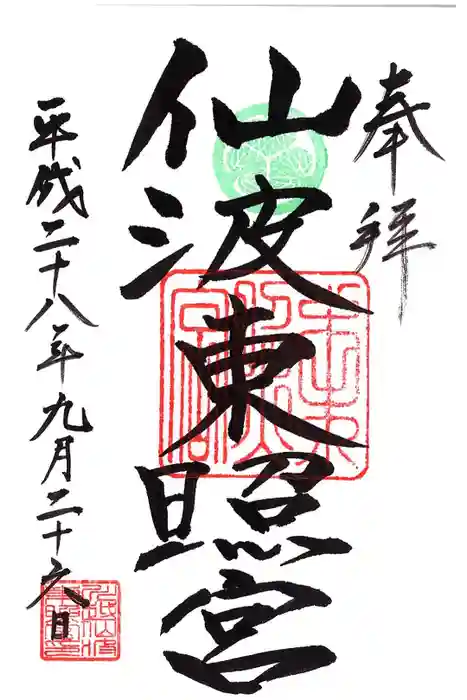 奉拝
仙波東照宮
平成二十八年九月二十六日